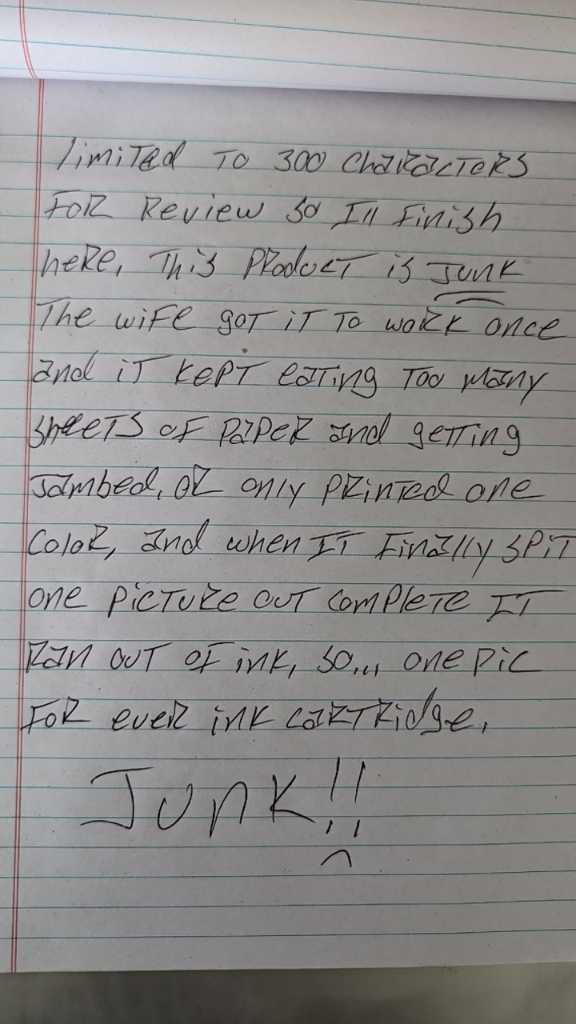 limited to 300 charactors
For Review so Ill Finish
here, This Product is Junk
The wife got it to work once
and it kept eating too many
sheets of paper and getting
Jambed, or only printed one
color, and when it finally spit
one picture out complete it
ran out of ink, so... one pic
for ever ink cartridge.
Junk!!